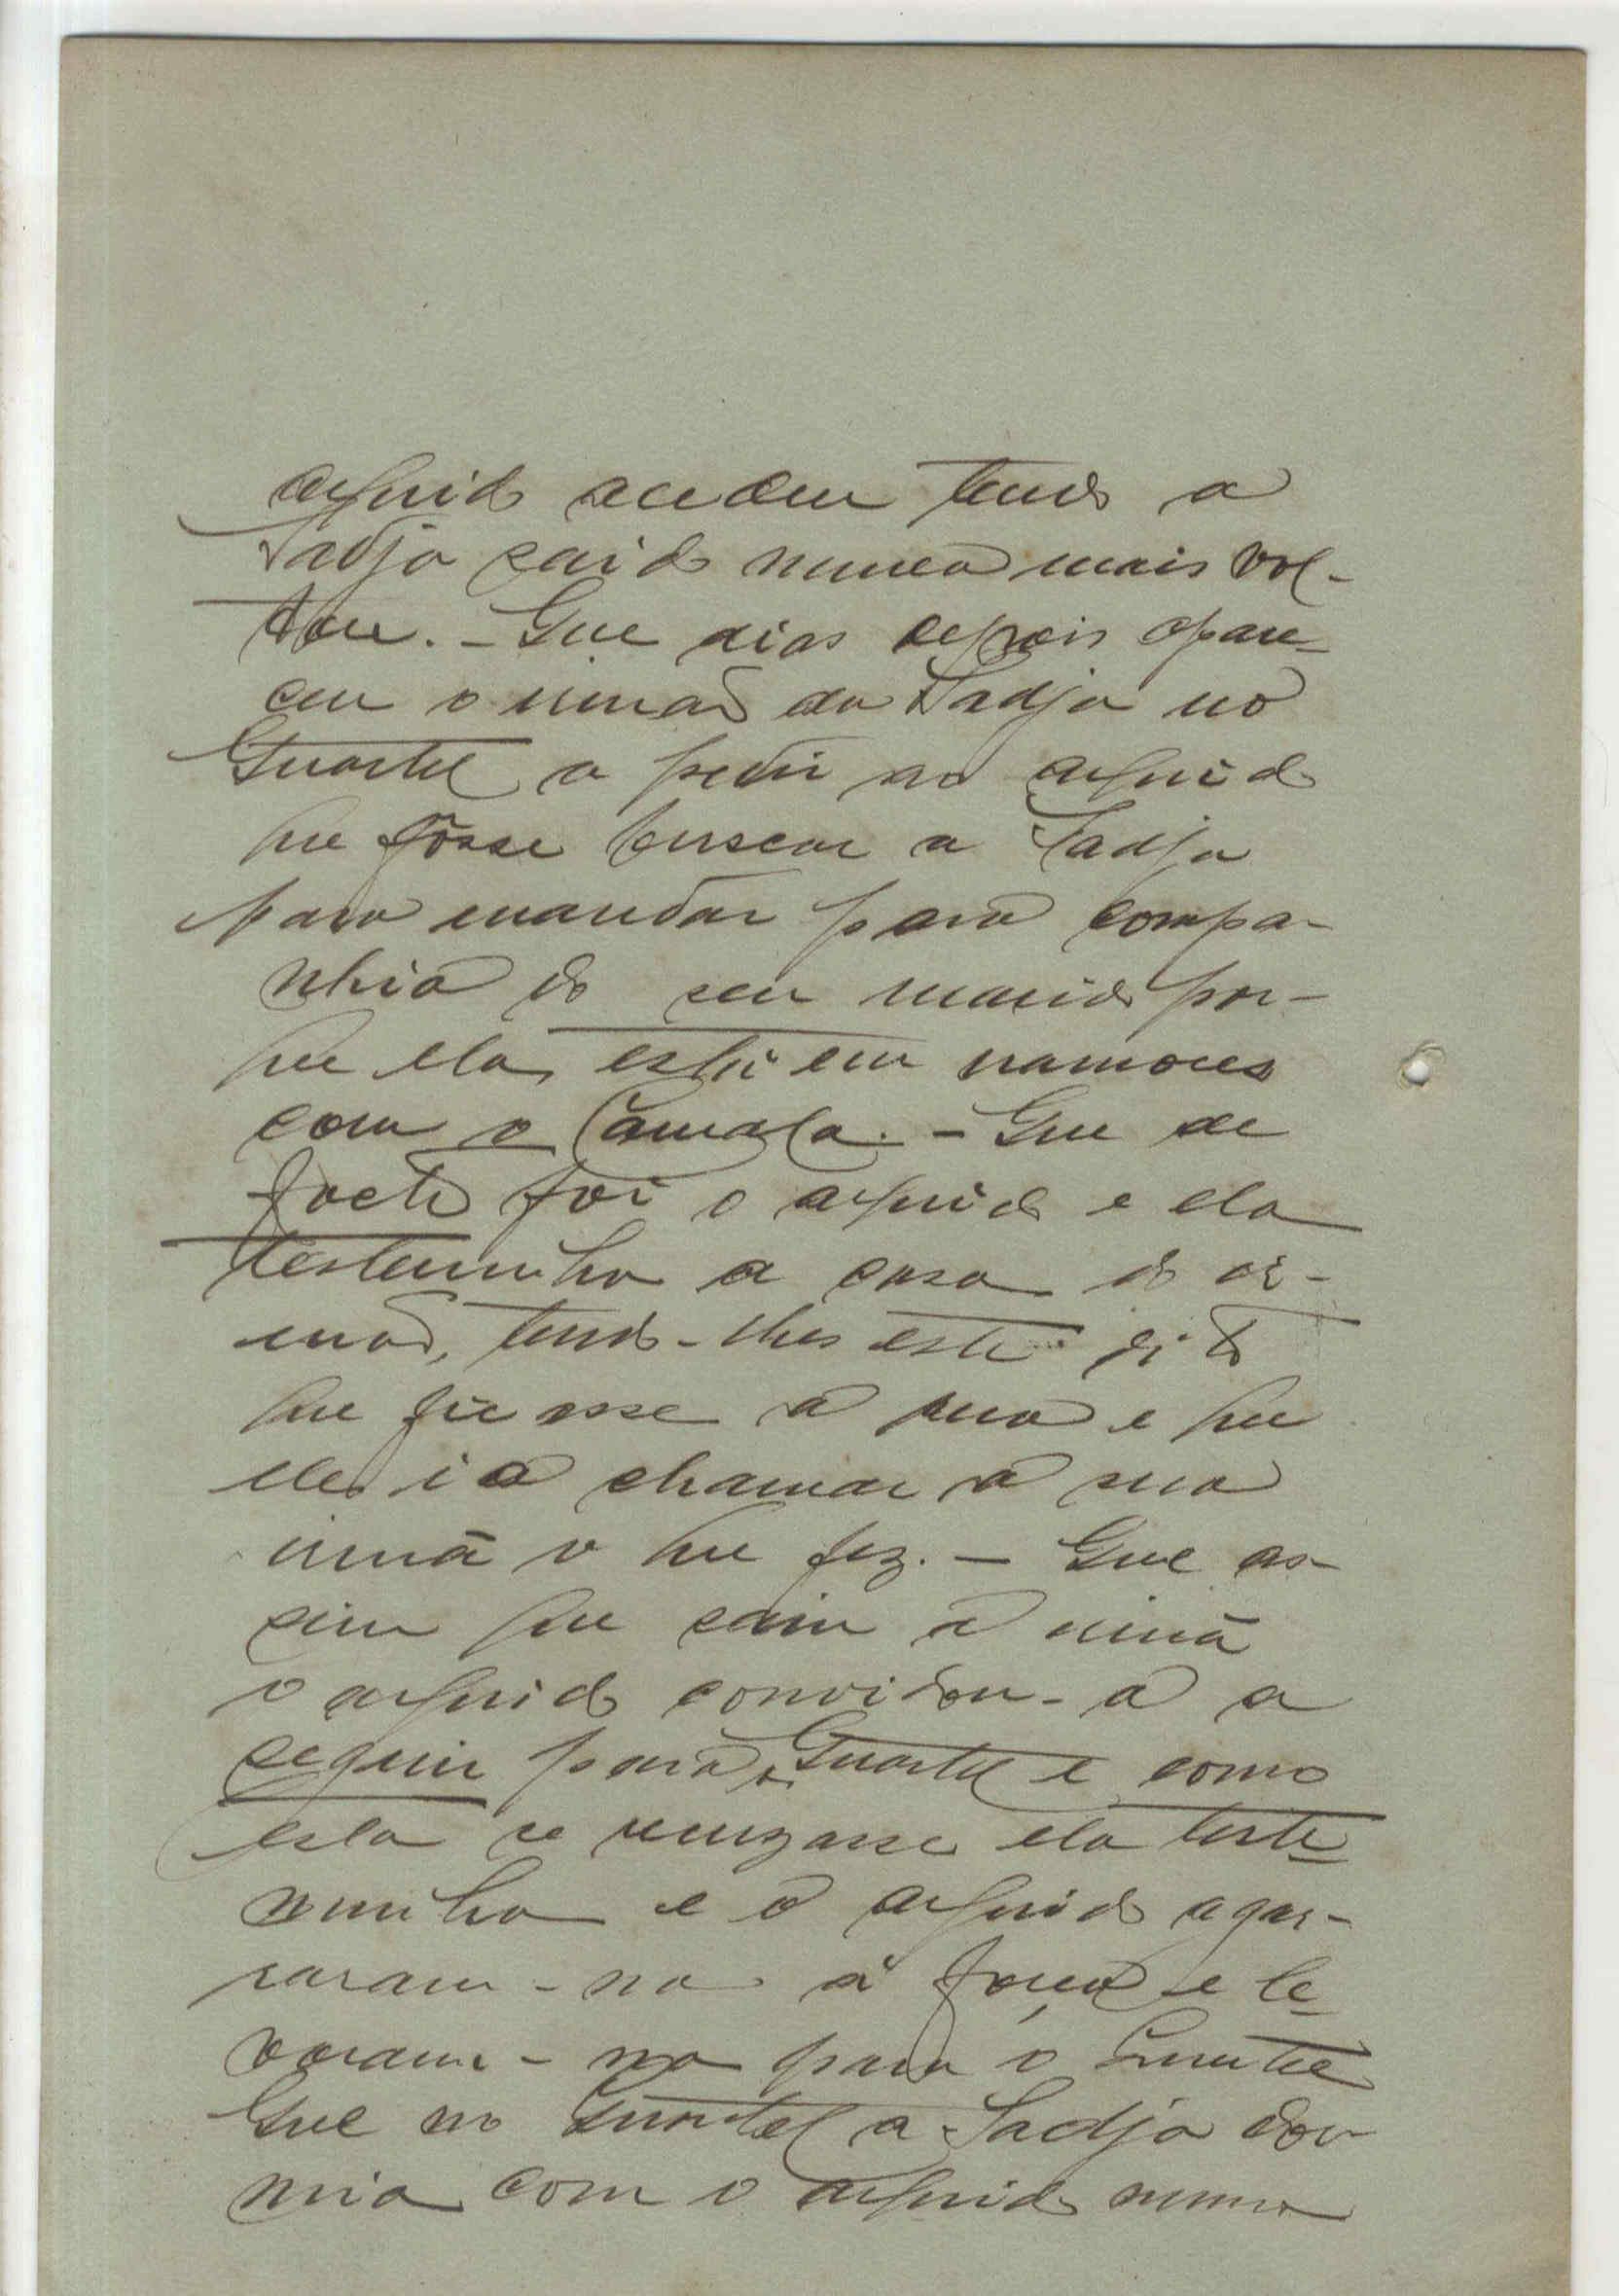 arguido acedeu tendo a
Sadja saido nunca mais vol-
tou. - Que dias depois apare-
ceu o irmão da Sadja no
Quartel a pedir ao arguido
que fôsse buscar a Sadja
para mandar para compa-
nhia do seu marido por-
que ela está em namoros
com o Camala. - Que de
facto foi o arguido e ela
testemunha a casa do ir-
mão, tendo-lhes este dito
que ficasse á rua e que
ele ia chamar a sua
irmã o que fez. - Que as-
sim que saiu a irmã
o arguido convidou-a a
seguir para o Quartel e como
esta se recuzasse ela teste-
munha e o arguido agar-
raram-na á força e le-
varam-na para o Quartel
Que no Quartel a Sadja dor
mia com o arguido numa